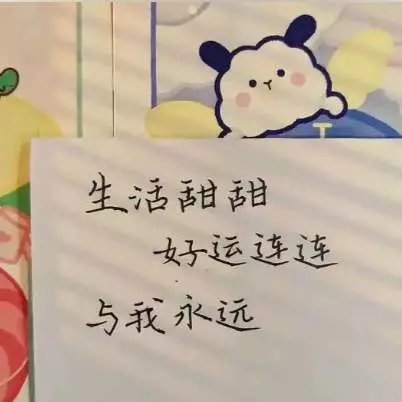 生活甜甜
好运连连
与我永远